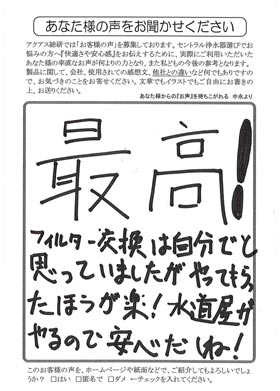 あなた様の声をお聞かせください
アクアス総研では「お客様の声」を募集しております。セントラル浄水器選びでお
悩みの方へ『快適さや安心感』をお伝えするために、実際にご利用いただいた
あなた様の率直なお声が何よりの力となり、また私どもの今後の参考となります。
製品に関して、会社、使用されての感想文、他社との違いなど何でもありますの
で、お気づきのことをお寄せください。文章でもイラストでもご自由にお書きの
上、お送りください。
あなた様からの『お声』を待ちこがれる 中永より
最高!
フィルター交換は自分でと
思っていましたがやってもらっ
たほうが楽!水道屋が
やるので安心だしね!
このお客様の声を、ホームページや紙面などで、ご紹介してもよろしいでしょ
うか? □はい □匿名で □ダメ ←チェックを入れてください。